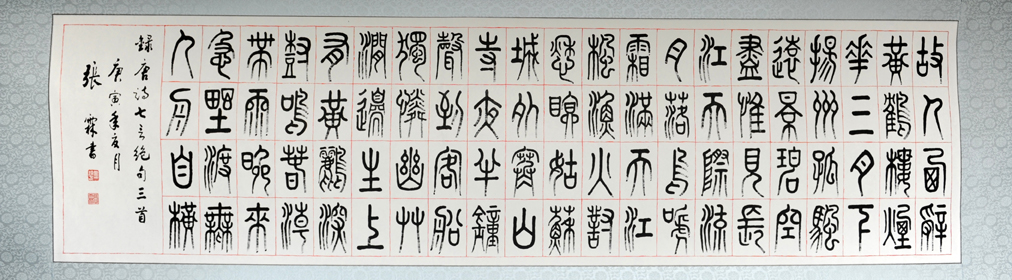 故人西辭
黃鶴樓煙
華三月下
揚州孤帆
遠景碧空
盡惟見長
江天際流
月落烏啼
霜滿天江
楓漁火對
愁眠姑蘇
城外寒山
寺夜半鐘
聲到客船
獨憐幽艸
澗邊生上
有黃鸝深
尌鳴春潮
帶雨晚來
急野渡無
人舟自橫
錄唐詩七言絕句三首
庚寅年夏月
張霖書